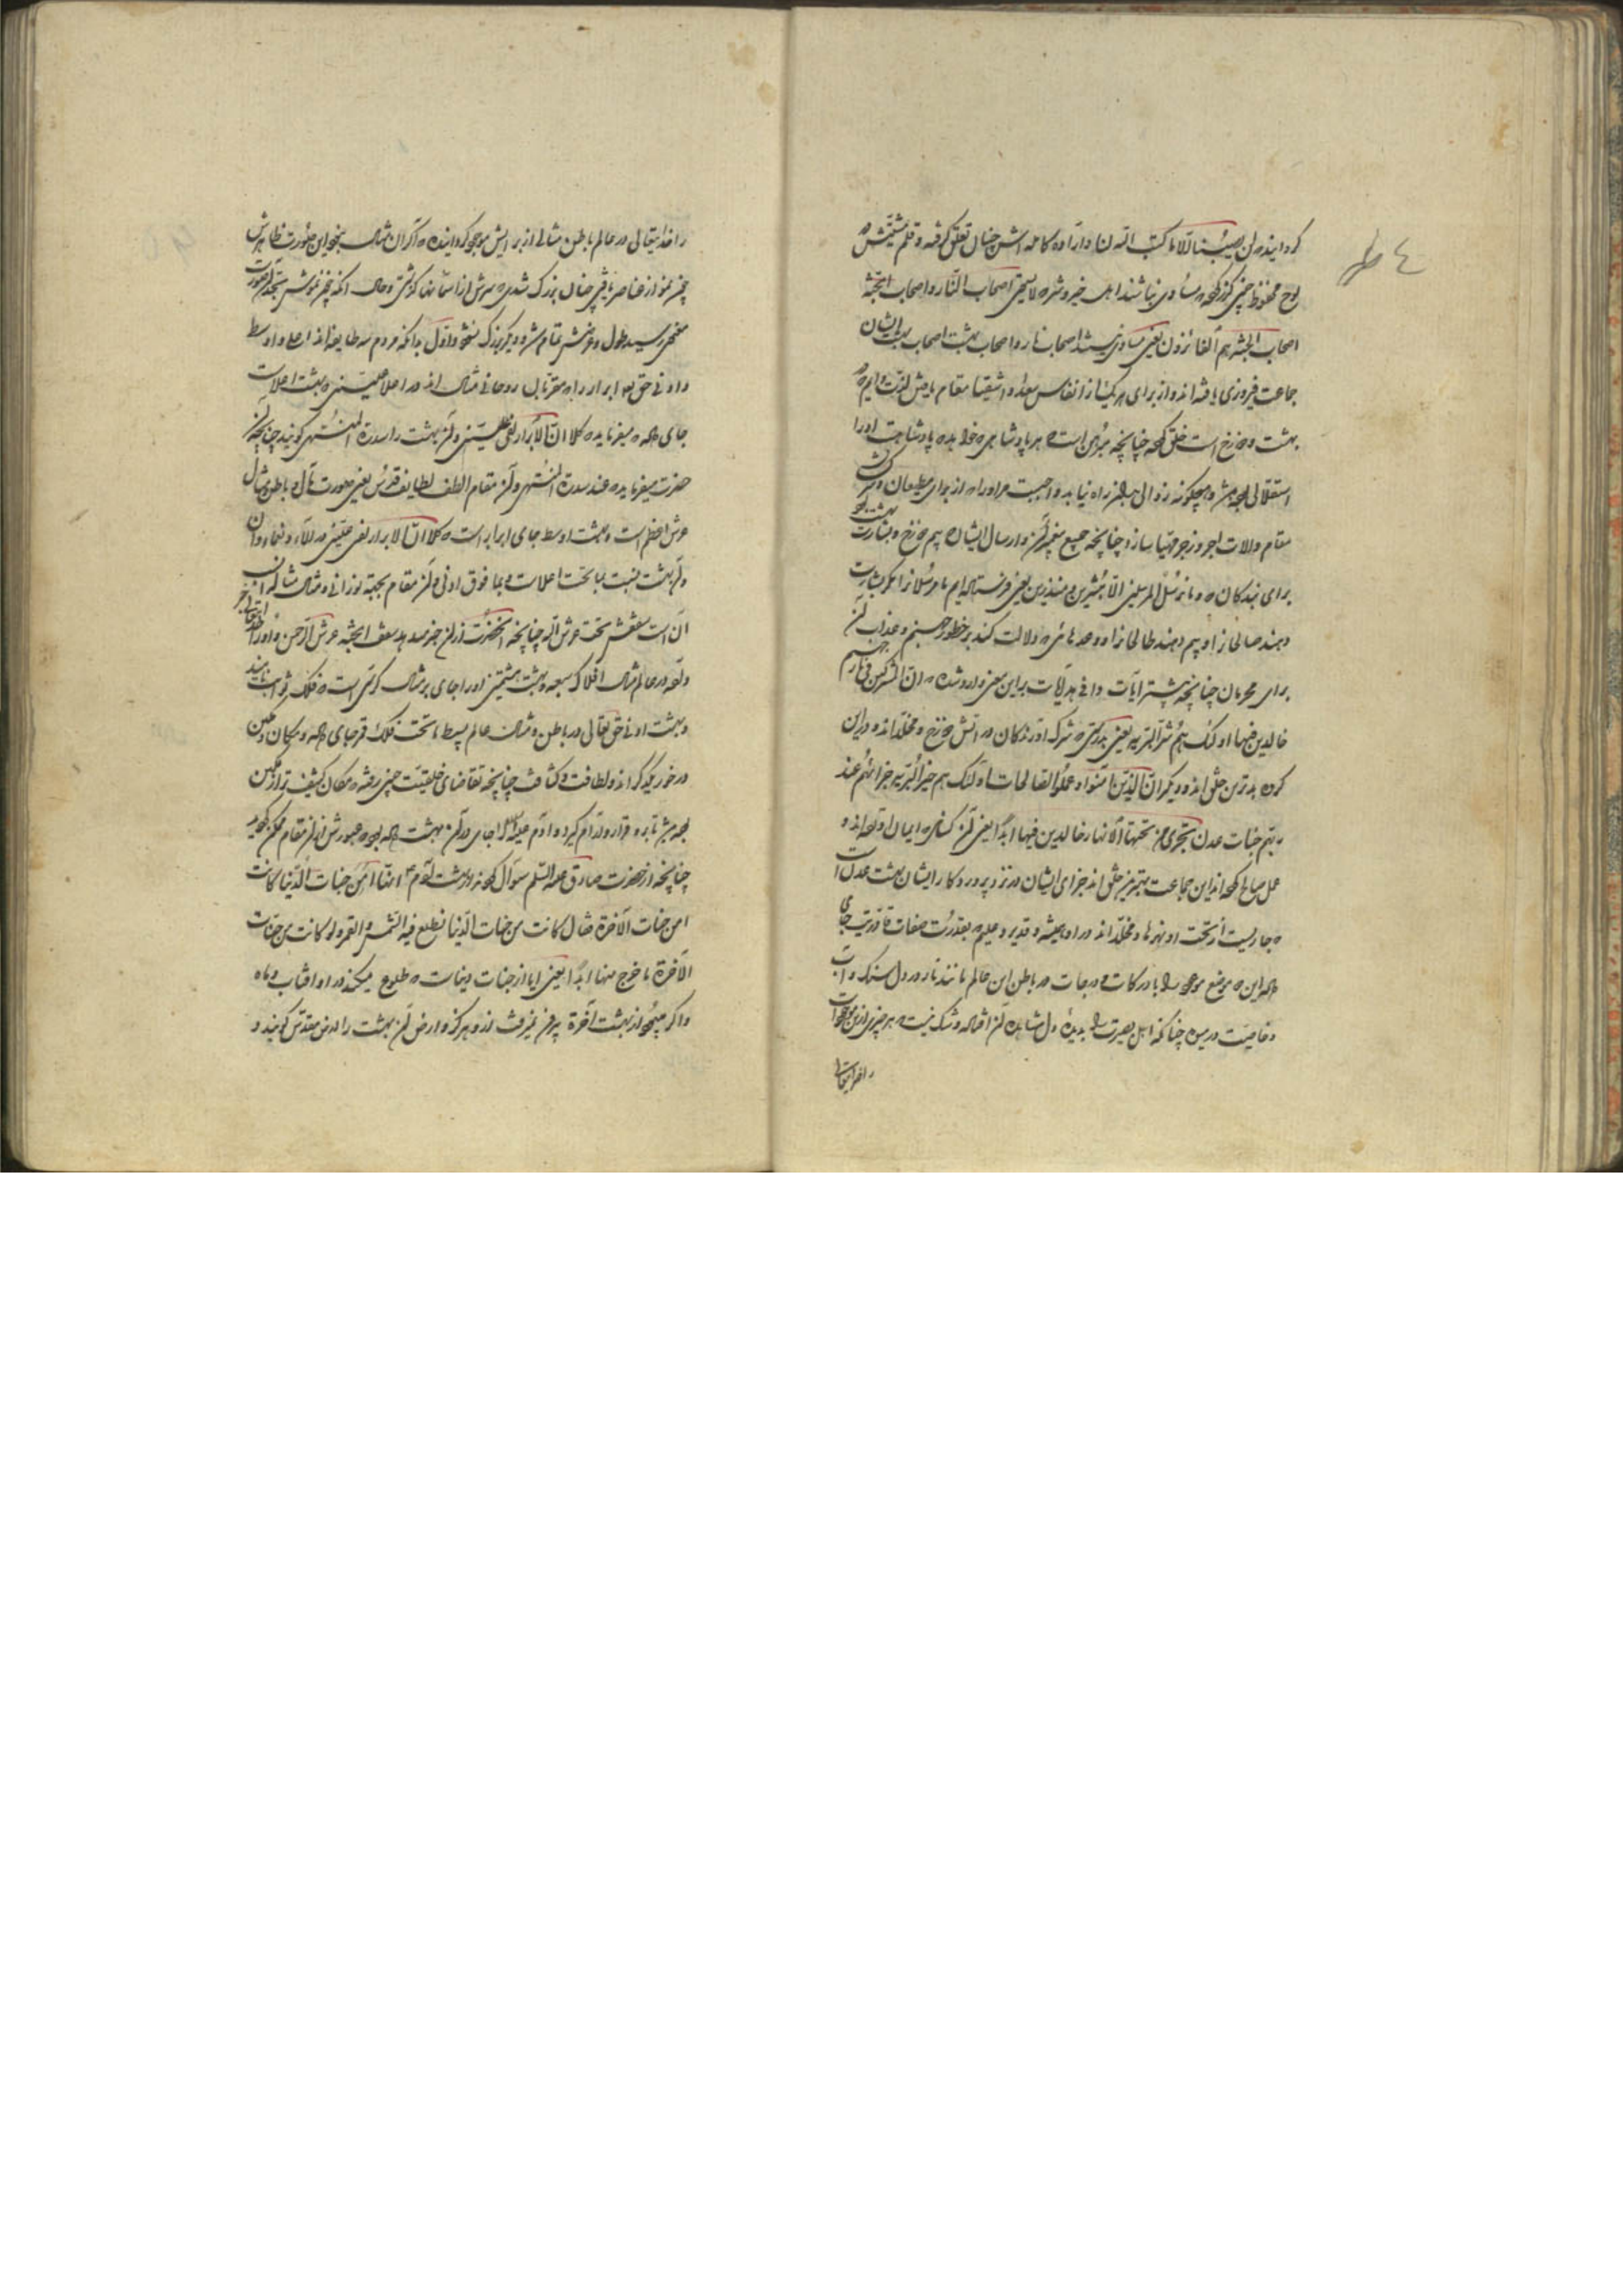 گردانیده لن یصیبنا الا ما کتب الله لنا و اراده کامله اش چنان تعلق گرفته و قلم مشیتش در
لوح محفوظ چنین کرده مساوی نباشند اهل خیر و شر لا یستوی اصحاب النار و اصحاب الجنة
اصحاب الجنة هم الفائزون یعنی مساوی نیستند اصحاب نار و اصحاب بهشت اصحاب بهشت ایشان
جماعت فیروزی یافته اند و از برای هر یک از انفاس سعدا و اشقیا مقام با عیش لذت و الم
بهشت و دوزخ است خلق کرده چنانچه مبرهن است هر پادشاهی که خواهد پادشاهیت او را
استقلالی بوده باشد و هیچگونه زوالی بدان راه نیابد واجبست مر او را که از برای مطیعان و سرکشان
مقام و الات اجر و زجر مهیا سازد چنانچه جمیع پیغمبران و ارسال ایشان بیم دوزخ و بشارت بهشت بود
برای بندگان و ما نرسل المرسلین الا مبشرین و منذرین یعنی نفرستاده ایم ما مرسلان را مگر بشارت
دهند صالحان را و بیم دهند طالحان را و وعدهائی که دلالت کند بر خطور جهنم و عذاب آن
برای مجرمان چنانچه بیشتر آیات وافی هدایات بر این معنی وارد شده ان المشرکین فی نار جهنم
خالدین فیها اولئک هم شر البریه یعنی بدرستی که شرک آورندگان در آتش دوزخ و مخلدند در این
گروه بدترین خلق اند و دیگر ان الذین آمنوا و عملوا الصالحات اولئک هم خیر البریه جزائهم عند
ربهم جنات عدن تجری من تحتها الانهار خالدین فیها ابدا یعنی آن کسانی که ایمان آورده اند و
عمل صالح کرده اند این جماعت بهترین خلق اند جزای ایشان در نزد پروردگار ایشان بهشت عدن است
که جاریست از تحت او نهرها و مخلدند در او همیشه و قدیر و علیم بقدرت صفات قادریت جای
داده این دو موضع موجود را با درکات و درجات در باطن این عالم مانند نار در دل سنگ و آب
و خاصیت در میوه چنانکه اهل بصیرت را بدیده دل مشاهده آن افتاده و شک نیست که هر چیزی از این موجودات
را خدایتعالی
را خدایتعالی در عالم باطن مثالی از برایش موجود گردانیده که اگر آن مثال نبودی این صورت ظاهرش
چون نمو از عناصر یافتی چنان بزرگ شدی که سرش از آسمانها گذشتی و حال آنکه چون نموش بحد آن صورت
منتهی رسید طول و عرضش تمام شود و دیگر بزرگ نشود اول بدانکه مردم سه طایفه اند اعلی و اوسط
و ادنی حق تعالی ابرار را که مقربان روحانی مثال اند در اعلا علیین که بهشت اعلاست
جای داده میفرماید کلا ان الابرار لفی علیین و آن بهشت را سدرة المنتهی گویند چنانچه آن
حضرت میفرماید عند سدرة المنتهی و آن مقام الطف لطایف قدس یعنی صورت مآل و باطن مثال
عرش اعظم است و بهشت اوسط جای ابرار است کلا ان الابرار لفی علیین در آلاء و نعماء و آن
و آن بهشت نسبت بما تحت اعلاست و بما فوق ادنی و آن مقام بهجت نورانی و مثال
آن است سقفش تحت عرش اله چنانچه آنحضرت از آن خبر میدهد سقف الجنة عرش الرحمن و او را
واقعه در عالم مثال افلاک سبعه و بهشت هشتمین او را جای بر مثال کرسی است که فلک ثوابت نامند
و بهشت ادنی حق تعالی در باطن و مثال عالم بسیط ما تحت فلک قمر جای داده و مکان و مکین
در خور یکدیگرند از لطافت و کثافت چنانچه تقاضای خلقیت چنین رفته که مکان کثیف تر از مکین
بوده باشد تا بر او قرار و آرام گیرد و آدم علیه السلام را جای در آن بهشت داده بود عبورش از آن مقام ممکن گردید
چنانچه از حضرت صادق علیه السلم سؤال کردند از بهشت آدم ع انها امن جنات الدنیا کانت
ام من جنات الآخرة فقال کانت من جنات الدنیا تطلع فیه الشمس و القمر و لو کانت من جنات
الآخرة ما خرج منها ابدا یعنی آیا از جنات دنیاست که طلوع میکند در او افتاب و ماه
و اگر میبود از بهشت آخرة بیرون نمیرفت از او هرگز و ارض آن بهشت را ارض مقدس گویند و